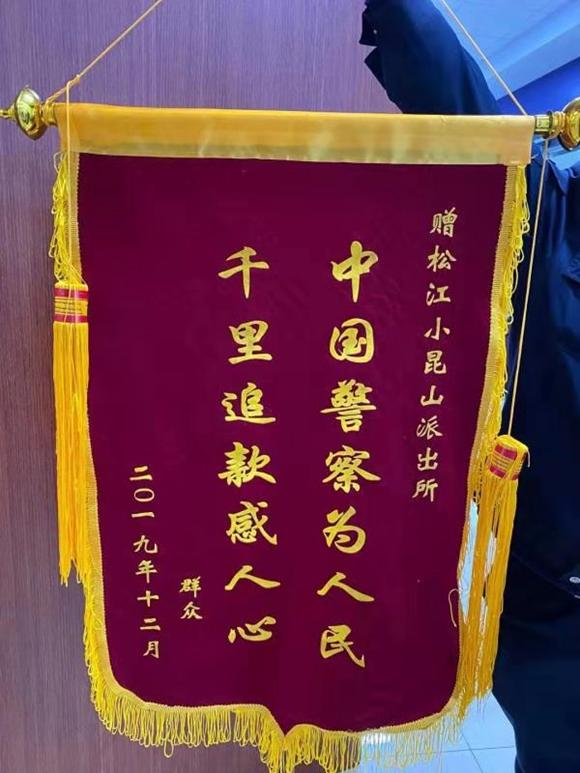 赠松江小昆山派出所
中国警察为人民
千里追款感人心
群众
二〇一九年十二月